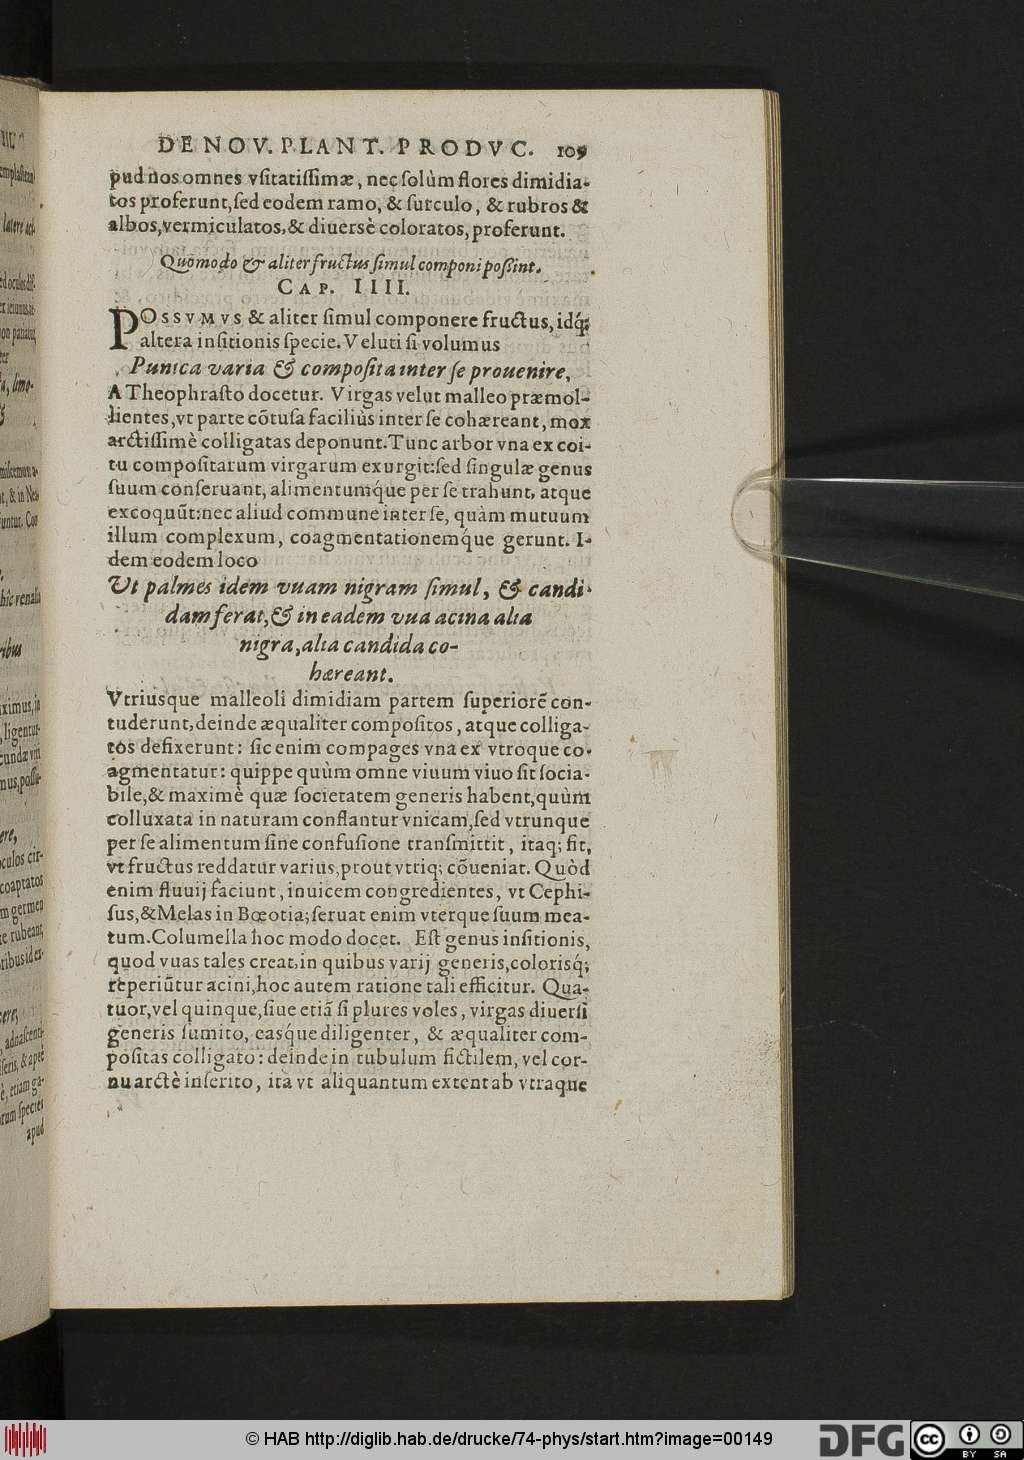 DE NOV. PLANT. PRODVC. 109
pud nos omnes vsitatissimæ, nec solùm flores dimidia-
tos proferunt, sed eodem ramo, & surculo, & rubros &
albos, vermiculatos, & diuersè coloratos, proferunt.
Quomodo & aliter fructus simul componi possint.
CAP. IIII.
POSSVMVS & aliter simul componere fructus, idq́;
altera insitionis specie. Veluti si volumus
Punica varia & composita inter se prouenire,
A Theophrasto docetur. Virgas velut malleo præmol-
lientes, vt parte cõtusa faciliùs inter se cohæreant, mox
arctissimè colligatas deponunt. Tunc arbor vna ex coi-
tu compositarum virgarum exurgit: sed singulæ genus
suum conseruant, alimentumq́ue per se trahunt, atque
excoquũt: nec aliud commune inter se, quàm mutuum
illum complexum, coagmentationemq́ue gerunt. I-
dem eodem loco
Vt palmes idem vuam nigram simul, & candi-
dam ferat, & in eadem vua acina alia
nigra, alia candida co-
hæreant.
Vtriusque malleoli dimidiam partem superiorẽ con-
tuderunt, deinde æqualiter compositos, atque colliga-
tos defixerunt: sic enim compages vna ex vtroque co-
agmentatur: quippe quùm omne viuum viuo sit socia-
bile, & maximè quæ societatem generis habent, quùm
colluxata in naturam conflantur vnicam, sed vtrunque
per se alimentum sine confusione transmittit, itaq; fit,
vt fructus reddatur varius, prout vtriq; cõueniat. Quòd
enim fluuij faciunt, inuicem congredientes, vt Cephi-
sus, & Melas in Bœotia; seruat enim vterque suum mea-
tum. Columella hoc modo docet. Est genus insitionis,
quod vuas tales creat, in quibus varij generis, colorisq́;
reperiũtur acini, hoc autem ratione tali efficitur. Qua-
tuor, vel quinque, siue etiã si plures voles, virgas diuersi
generis sumito, easq́ue diligenter, & æqualiter com-
positas colligato: deinde in tubulum fictilem, vel cor-
nu arctè inserito, ita vt aliquantum extent ab vtraque
© HAB http://diglib.hab.de/drucke/74-phys/start.htm?image=00149
DFG
cc BY SA